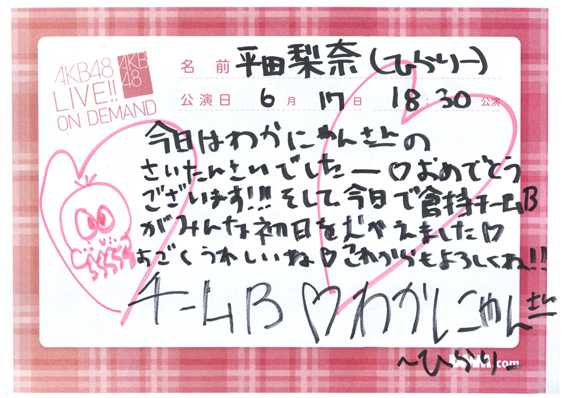 AKB48
LIVE!!
ON DEMAND
AKB
48
名前 平田梨奈(ひらりー)
公演日 6月17日 18:30公演
今日はわかにゃんさんの
さいたんさいでしたー♡おめでとう
ございます!!!そして今日で倉持チームB
がみんな初日をむかえました♡
すごくうれしいね♡これからもよろしくね!!
チームB♡わかにゃんさん
〜ひらりー
.com